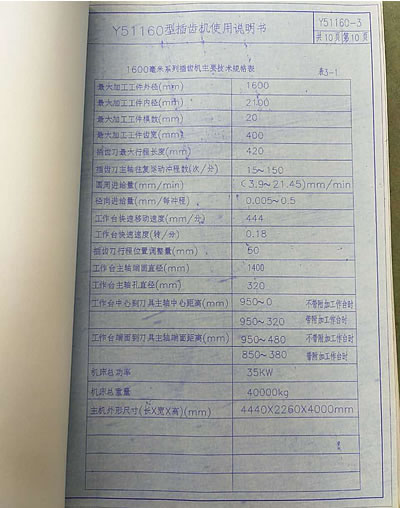 Y51160型插齿机使用说明书
Y51160-3
共10页第10页
1600毫米系列插齿机主要技术规格表
表3-1
最大加工工件外径(mm) 1600
最大加工工件内径(mm) 2100
最大加工工件模数(mm) 20
最大加工工件齿宽(mm) 400
插齿刀最大行程长度(mm) 420
插齿刀主轴往复运动冲程数(次/分) 15~150
圆周进给量(mm/min) (3.9~21.45)mm/min
径向进给量(mm/每冲程) 0.005~0.5
工作台快速移动速度(mm/分) 444
工作台快速速度(转/分) 0.18
插齿刀行程位置调整量(mm) 50
工作台主轴端面直径(mm) 1400
工作台主轴孔直径(mm) 320
工作台中心到刀具主轴中心距离(mm) 950~0 不带附加工作台时
950~320 带附加工作台时
工作台端面到刀具主轴端面距离(mm) 950~480 不带附加工作台时
850~380 带附加工作台时
机床总功率 35KW
机床总重量 40000kg
主机外形尺寸(长X宽X高)(mm) 4440X2260X4000mm